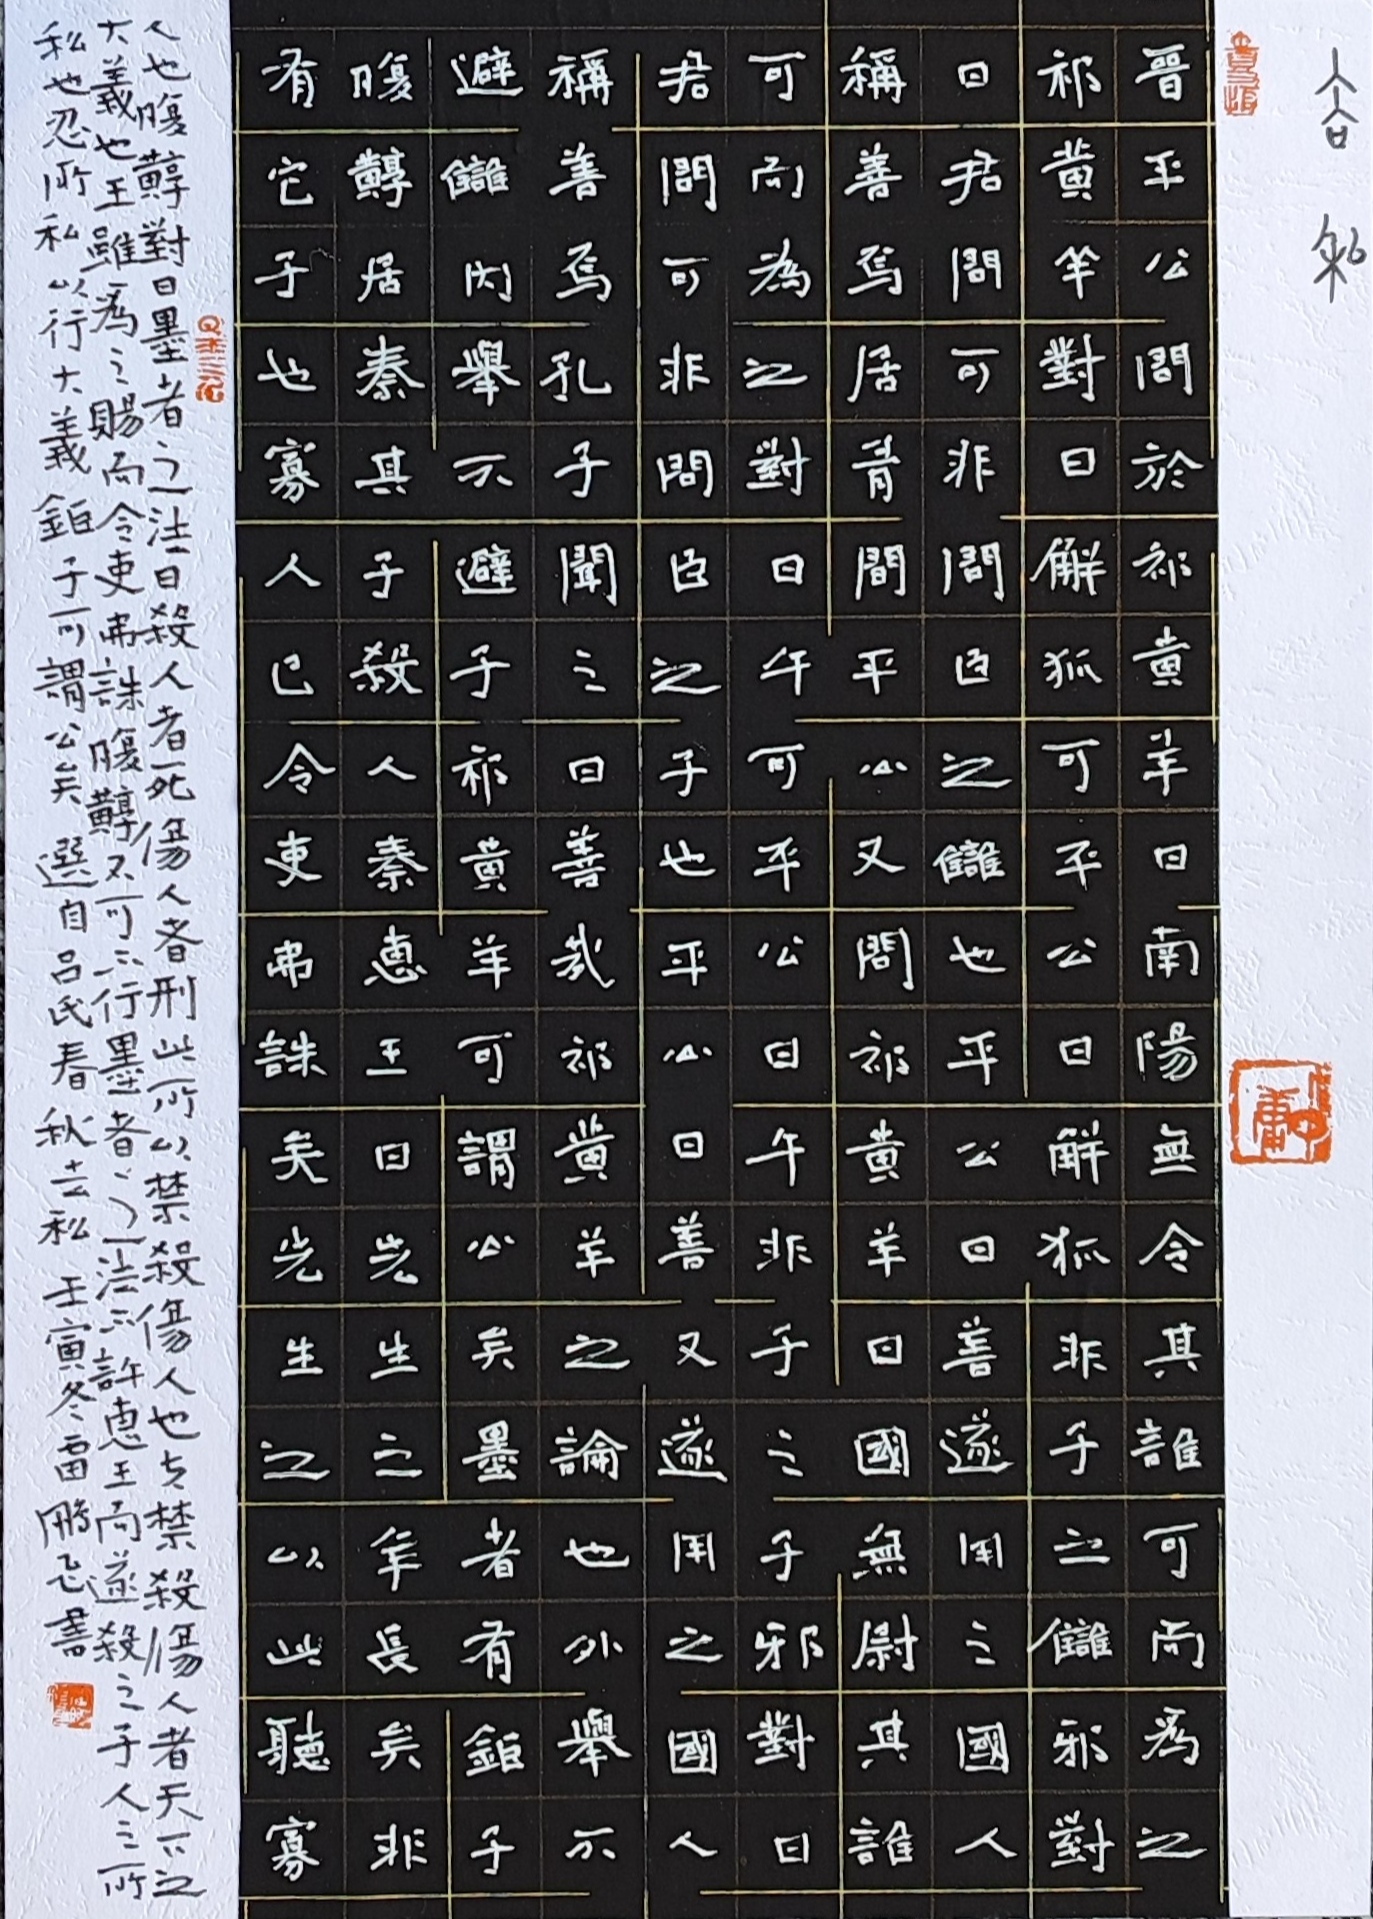 去私
晉平公問於祁黄羊曰南陽無令其誰可而為之
祁黄羊對曰解狐可平公曰解狐非子之讎邪對
曰君問可非問臣之讎也平公曰善遂用之國人
稱善焉居有間平公又問祁黄羊曰國無尉其誰
可而為之對曰午可平公曰午非子之子邪對曰
君問可非問臣之子也平公曰善又遂用之國人
稱善焉孔子聞之曰善哉祁黄羊之論也外舉不
避讎内舉不避子祁黄羊可謂公矣墨者有鉅子
腹䵍居秦其子殺人秦惠王曰先生之年長矣非
有它子也寡人已令吏弗誅矣先生之以此聽寡
人也腹䵍對曰墨者之法曰殺人者死傷人者刑此所以禁殺傷人也夫禁殺傷人者天下之
大義也王雖為之賜而令吏弗誅腹䵍不可不行墨者之法不許惠王而遂殺之子人之所
私也忍所私以行大義鉅子可謂公矣 選自吕氏春秋去私 壬寅冬雷鵬飛書